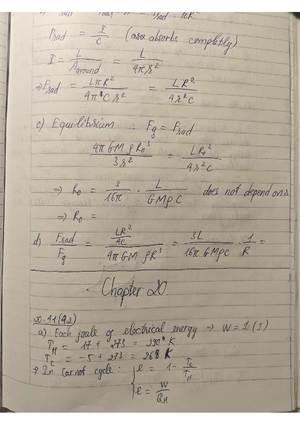 Prad = I/C (area absorbs completely)
I = L/Aaround = L/4πr²
⇒ Frad = LπR²/4πCr² = LR²/4r²C
c) Equilibrium : Fg = Frad
4πGMρR₀³/3r² = LR₀²/4r²C
⇒ R₀ = 3/16π · L/GMρC does not depend on r
⇒ R₀ =
d) Frad/Fg = LR²/4C / 4πGMρR³ = 3L/16πGMρC · 1/R =
Chapter 20
20.41(42)
a) Each joule of electrical energy → W = 1 (J)
TH = 17 + 273 = 290 K
TC = -5 + 273 = 268 K
In Carnot cycle : e = 1 - TC/TH
e = W/QH